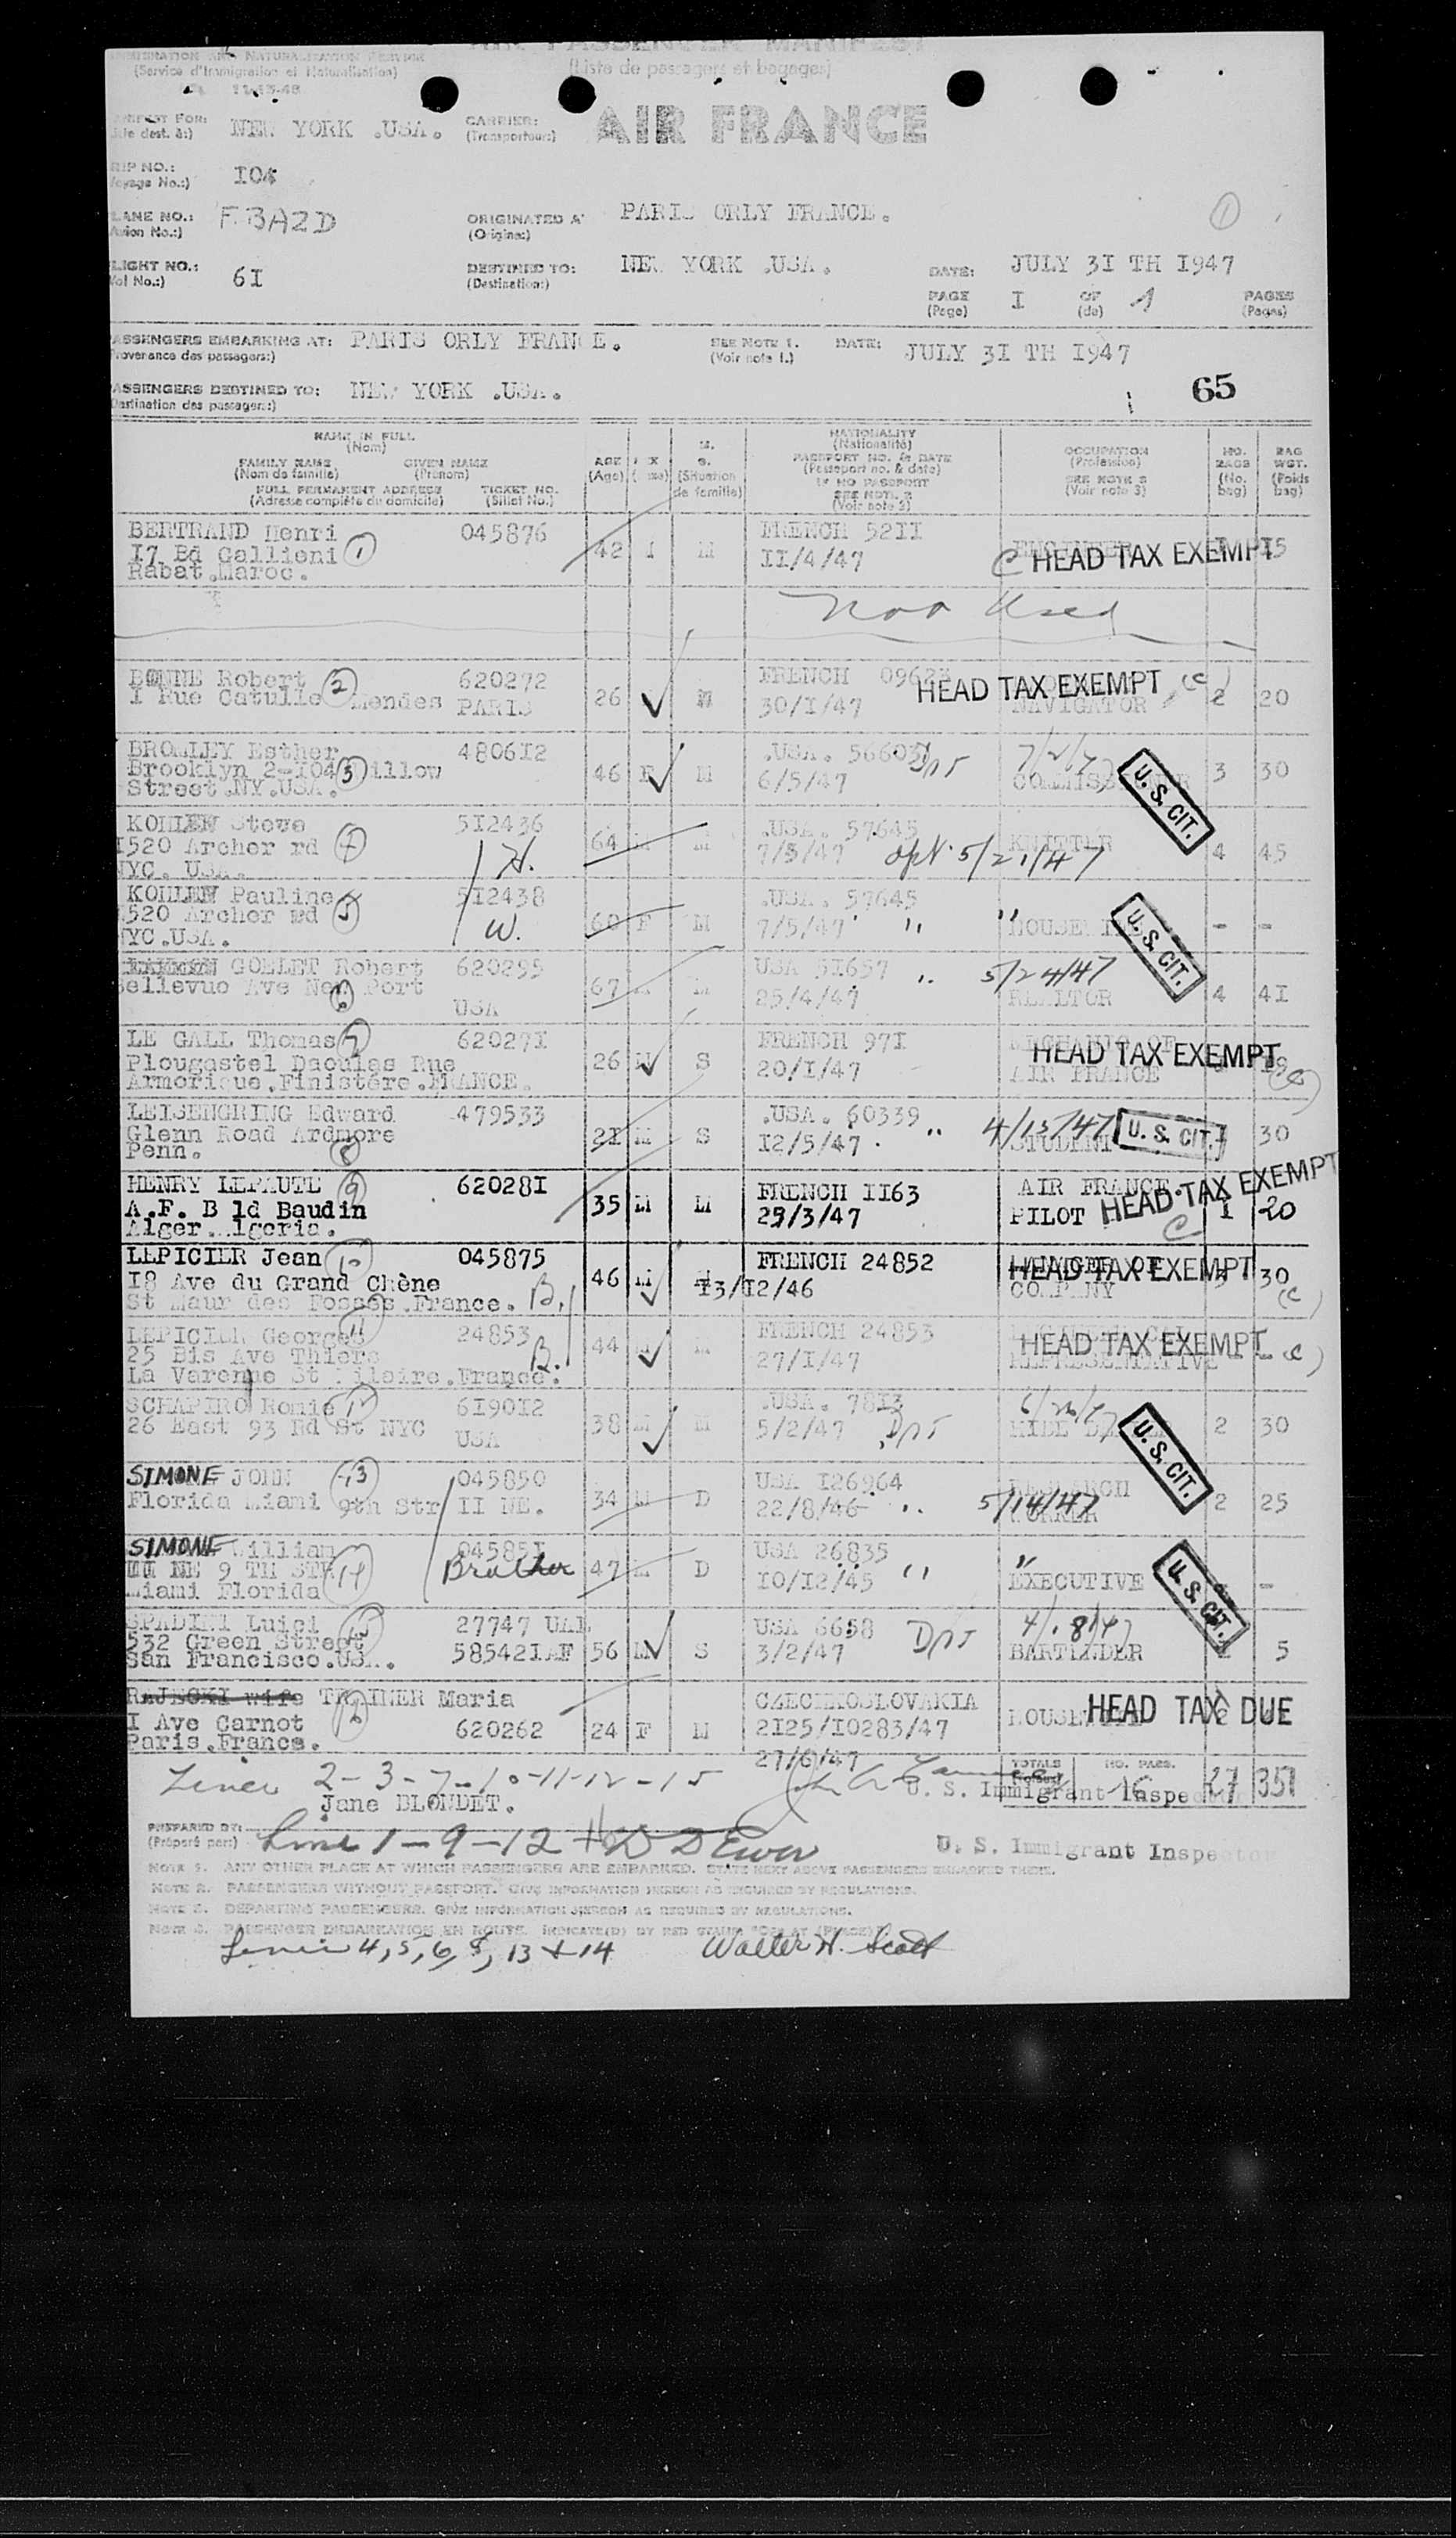 AIR PASSENGER MANIFEST
IMMIGRATION AND NATURALIZATION SERVICE
(Service d'Immigration et Naturalisation)
(Liste de passagers et bagages)
NEW YORK .USA.
CARRIER:
(Transporteur:)
AIR FRANCE
104
F.BAZD
ORIGINATED AT
(Origine:)
PARIS ORLY FRANCE.
1
6I
DESTINED TO:
(Destination:)
NEW YORK .USA.
DATE:
JULY 3I TH I947
PAGE
(Page)
I
OF
(de)
1
PAGES
(Pages)
ASSENGERS EMBARKING AT:
rovenance des passagers:)
PARIS ORLY FRANCE.
SEE NOTE 1.
(Voir note 1.)
DATE:
JULY 3I TH I947
ASSENGERS DESTINED TO:
Destination des passagers:)
NEW YORK .USA.
65
NAME IN FULL
(Nom)
FAMILY NAME
(Nom de famille)
GIVEN NAME
(Prénom)
FULL PERMANENT ADDRESS
(Adresse complète du domicile)
TICKET NO.
(Billet No.)
AGE
(Age)
M.
S.
(Situation
de famille)
NATIONALITY
(Nationalité)
PASSPORT NO. & DATE
(Passeport no. & date)
IF NO PASSPORT
SEE NOTE 2
(Voir note 2)
OCCUPATION
(Profession)
SEE NOTE 3
(Voir note 3)
NO.
BAGS
(No.
bag)
BAG
WGT.
(Poids
bag)
BERTRAND Henri 045876 42 M FRENCH 52II
I7 Bd Gallieni 1 II/4/47 C HEAD TAX EXEMPT I5
Rabat.Maroc.
Not Used
BONNE Robert 620272 FRENCH HEAD TAX EXEMPT (c)
I Rue Catulle 2 Mendes PARIS 26 M 30/I/47 NAVIGATOR 2 20
BROMLEY Esther 480612 .USA. 56603 Dpt 7/2/47
Brooklyn 2-I04 3 Willow 46 F M 6/5/47 3 30
Street.NY.USA. U.S. CIT.
KOHLEN Steve 5I2436 .USA. 57645 KNITTER
I520 Archer rd 4 H. 64 M M 7/5/47 dpt. 5/21/47 4 45
NYC. USA.
KOHLEN Pauline 5 5I2438 .USA. 57645
I520 Archer rd W. 60 F M 7/5/47 " " HOUSEWIFE - -
NYC.USA. U.S. CIT.
GOELET Robert 620295 USA 5I657 " 5/24/47
Bellevue Ave New Port 6 USA 67 M M 25/4/47 REALTOR 4 4I
LE GALL Thomas 7 62027I FRENCH 97I MECHANIC OF
Plougastel Daoulas Rue 26 M S 20/I/47 AIR FRANCE HEAD TAX EXEMPT
Armorique.Finistére.FRANCE.
LEISENGRING Edward 479533 .USA. 60339 " 4/15/47 U.S. CIT.
Glenn Road Ardmore 2I M S I2/5/47 STUDENT 30
Penn. 8
HENRY LEPAUTE 9 62028I FRENCH II63 AIR FRANCE HEAD TAX EXEMPT
A.F. B ld Baudin 35 M M 29/3/47 PILOT C I 20
Alger.Algeria.
LEPICIER Jean 10 045875 FRENCH 24852 MANAGER OF HEAD TAX EXEMPT
I8 Ave du Grand Chêne 46 M M I3/I2/46 COMPANY 30
St Maur des Fossés.France. B. (c)
LEPICIER Georges 11 24853 FRENCH 24853 HEAD TAX EXEMPT
25 Bis Ave Thiers 44 M M 27/I/47 REPRESENTATIVE - (c)
La Varenne St Hilaire.France. B.
SCHAPIRO 12 6I90I2 .USA. 78I3
26 East 93 Rd St NYC USA 38 M M 5/2/47 Dpt 2 30
U.S. CIT.
SIMONE JOHN 13 045850 USA I26964 RESEARCH
Florida Miami 9th Str II NE. 34 M D 22/8/46 " 5/14/47 WORKER 2 25
SIMONE William 04585I USA 26835 "
III NE 9 TH STR 14 Brother 47 M D I0/I2/45 " EXECUTIVE -
Miami Florida U.S. CIT.
SPADINI Luigi 15 27747 UAL USA 6658 Dpt
532 Green Street 58542IAF 56 M S 3/2/47 BARTENDER 5
San Francisco.USA.
RAJECKI wife TRAINER Maria CZECHOSLOVAKIA
I Ave Carnot 16 620262 24 F M 2I25/I0283/47 HOUSEWIFE HEAD TAX DUE
Paris.France. 27/6/47
Lines 2-3-7-10-11-12-15
Jane BLONDET.
U. S. Immigrant Inspector
TOTALS
NO. PASS.
16 27 351
PREPARED BY:
(Préparé par:)
Lines 1-9-12
U. S. Immigrant Inspector
NOTE 1. ANY OTHER PLACE AT WHICH PASSENGERS ARE EMBARKED. STATE NEXT ABOVE PASSENGERS EMBARKED THERE.
NOTE 2. PASSENGERS WITHOUT PASSPORT. GIVE INFORMATION HEREON AS REQUIRED BY REGULATIONS.
NOTE 3. DEPARTING PASSENGERS. GIVE INFORMATION HEREON AS REQUIRED BY REGULATIONS.
PASSENGER EMBARKATION EN ROUTE. INDICATE(D) BY RED STAMP
Lines 4, 5, 6, 8, 13 + 14 Walter H. Scott